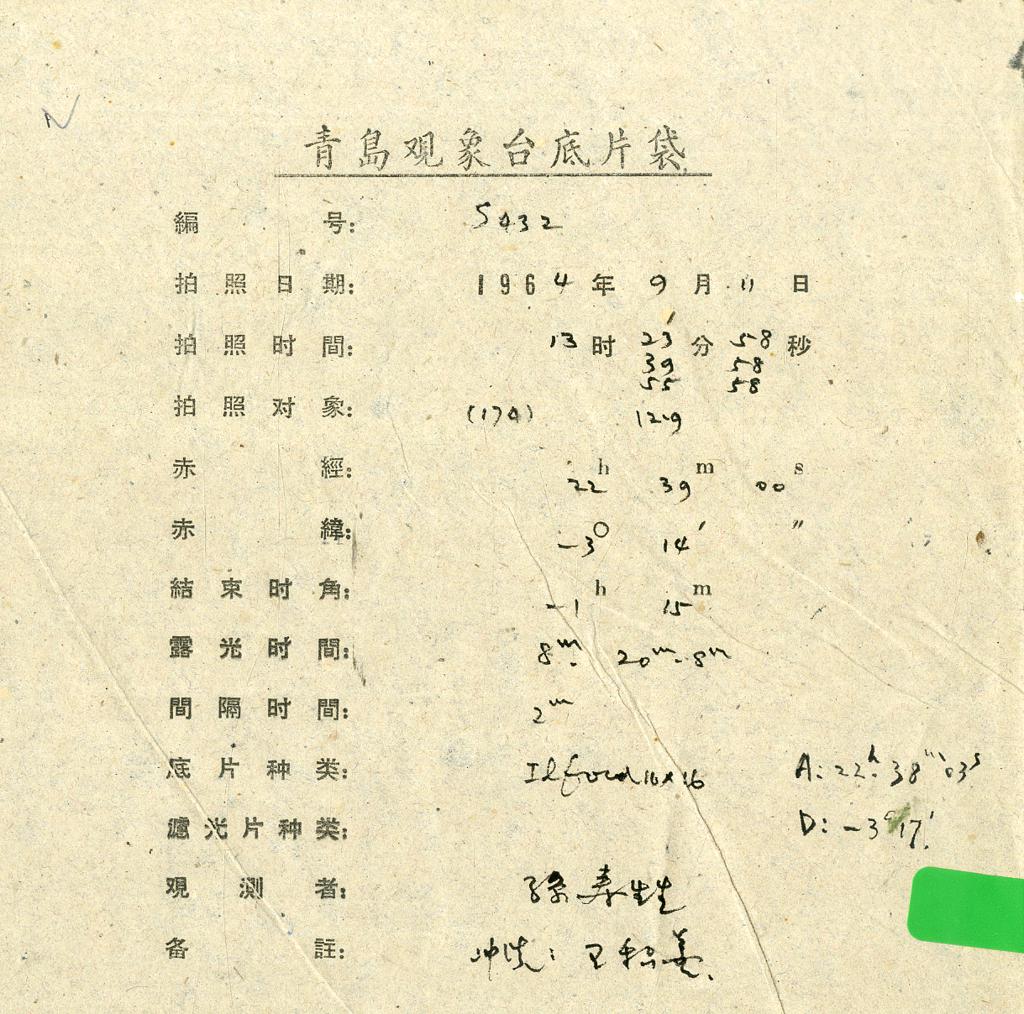 青島观象台底片袋
編号: 5432
拍照日期: 1964年9月11日
拍照时間: 13时23分58秒
39 58
55 58
拍照对象: (174) 12.9
赤經: 22h 39m 00s
赤緯: -3° 14′ ″
結束时角: -1h 15m
露光时間: 8m. 20m. 8m
間隔时間: 2m
底片种类: Ilford 16×16 A: 22h 38m 03s
濾光片种类: D: -3° 17′
覌测者: 孫寿
备註: 冲洗: 王